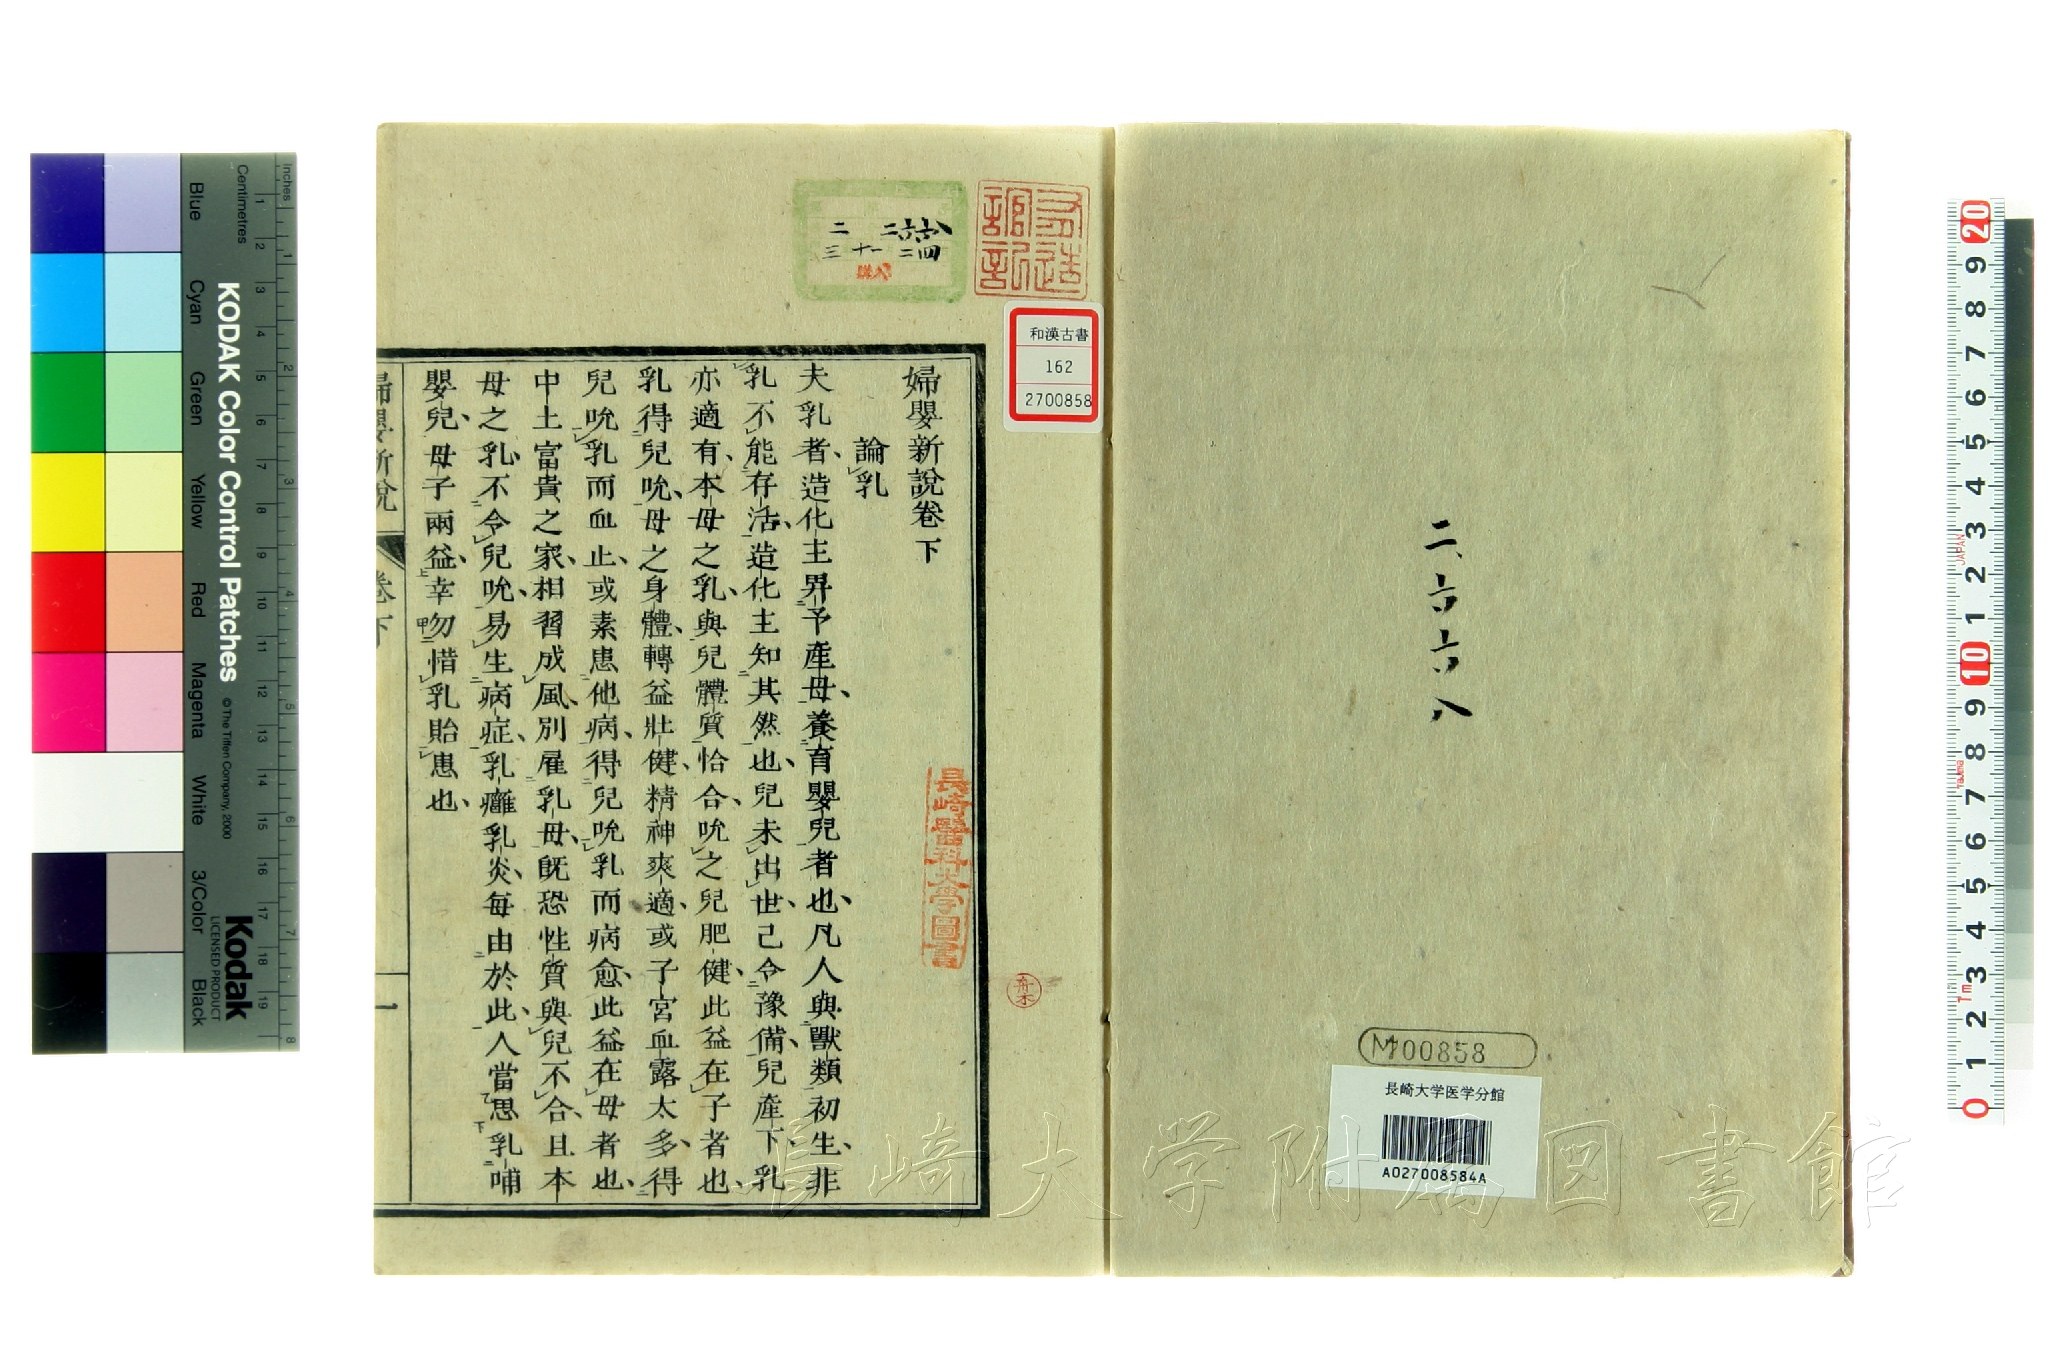 二、六六八
M700858
長崎大学医学分館
A027008584A
和漢古書
162
2700858
長崎醫科大學圖書
婦嬰新說卷下
論乳
夫乳者造化主畀予產母養育嬰兒者也凡人與獸類初生非
乳不能存活造化主知其然也兒未出世己令豫備兒產下乳
亦適有本母之乳與兒體質恰合吮之兒肥健此益在子者也
乳得兒吮母之身體轉益壯健精神爽適或子宮血露太多得
兒吮乳而血止或素患他病得兒吮乳而病愈此益在母者也
中土富貴之家相習成風別雇乳母既恐性質與兒不合且本
母之乳不令兒吮易生病症乳癰乳炎每由於此人當思乳哺
嬰兒母子兩益幸勿惜乳貽患也
婦嬰新說
卷下
一
長崎大学附属図書館
KODAK Color Control Patches
© The Tiffen Company, 2000
Kodak
LICENSED PRODUCT
Inches
Centimetres
Blue
Cyan
Green
Yellow
Red
Magenta
White
3/Color
Black
JAPAN